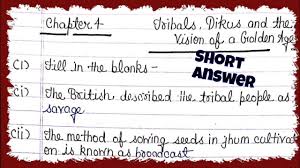 Chapter 4 Tribals, Dikus and the
Vision of a Golden Age
SHORT
ANSWER
C1) Fill in the blanks -
Ci) The British described the tribal people as
savage
Cii) The method of sowing seeds in jhum cultivat
on is known as broadcast